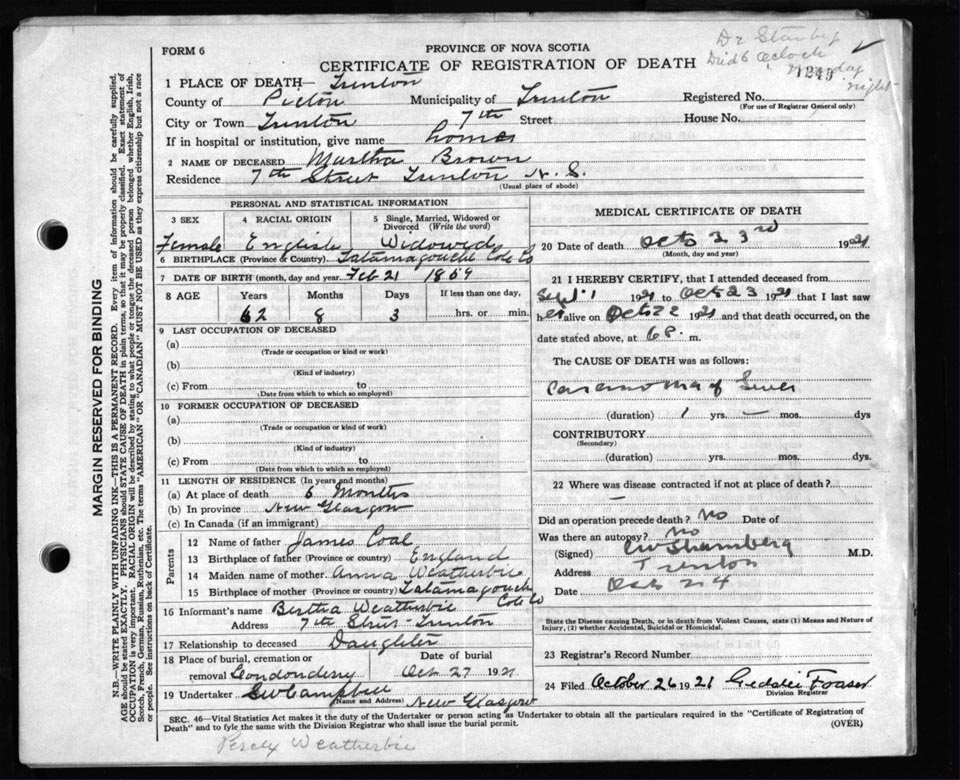 Dr Stanbop
Died 6 oclock
Monday
night
FORM 6
PROVINCE OF NOVA SCOTIA
CERTIFICATE OF REGISTRATION OF DEATH
1 PLACE OF DEATH— Trenton
County of Pictou Municipality of Trenton Registered No.
(For use of Registrar General only)
City or Town Trenton 7th Street House No.
If in hospital or institution, give name home
2 NAME OF DECEASED Martha Brown
Residence 7th Street Trenton N.S.
(Usual place of abode)
PERSONAL AND STATISTICAL INFORMATION
3 SEX 4 RACIAL ORIGIN 5 Single, Married, Widowed or Divorced (Write the word)
Female English Widowed
6 BIRTHPLACE (Province or Country) Tatamagouche Cole Co
7 DATE OF BIRTH (month, day and year) Feb 21 1859
8 AGE Years Months Days If less than one day,
62 8 3 hrs. or min.
9 LAST OCCUPATION OF DECEASED
(a)
(Trade or occupation or kind or work)
(b)
(Kind of industry)
(c) From to
(Date from which to which so employed)
10 FORMER OCCUPATION OF DECEASED
(a)
(Trade or occupation or kind of work)
(b)
(Kind of industry)
(c) From to
(Date from which to which so employed)
11 LENGTH OF RESIDENCE (In years and months)
(a) At place of death 6 Months
(b) In province New Glasgow
(c) In Canada (if an immigrant)
Parents
12 Name of father James Coal
13 Birthplace of father (Province or country) England
14 Maiden name of mother Anna Weatherbie
15 Birthplace of mother (Province or country) Tatamagouche
Cole Co
16 Informant's name Bertha Weatherbie
Address 7th Street Trenton
17 Relationship to deceased Daughter
18 Place of burial, cremation or removal Londonderry Date of burial Oct 27 1921
19 Undertaker GW Campbell
(Name and Address) New Glasgow
MEDICAL CERTIFICATE OF DEATH
20 Date of death Octo 23rd 1921
(Month, day and year)
21 I HEREBY CERTIFY, that I attended deceased from
Sept 1 1921 to Oct 23 1921 that I last saw
her alive on Oct 22 1921 and that death occurred, on
date stated above, at 6 P. m.
The CAUSE OF DEATH was as follows:
Carcinoma of Liver
(duration) 1 yrs. — mos. dys
CONTRIBUTORY
(Secondary)
(duration) yrs. mos. dys.
22 Where was disease contracted if not at place of death?
—
Did an operation precede death? No Date of
Was there an autopsy? No
(Signed) M.D.
Address Trenton
Date Oct 24
State the Disease causing Death, or in death from Violent Causes, state (1) Means and Nature of
Injury, (2) whether Accidental, Suicidal or Homicidal.
23 Registrar's Record Number
24 Filed October 26 1921 Geddie Fraser
Division Registrar
SEC. 46—Vital Statistics Act makes it the duty of the Undertaker or person acting as Undertaker to obtain all the particulars required in the "Certificate of Registration of
Death" and to fyle the same with the Division Registrar who shall issue the burial permit. (OVER)
Percy Weatherbie
MARGIN RESERVED FOR BINDING
N.B.—WRITE PLAINLY WITH UNFADING INK—THIS IS A PERMANENT RECORD. Every item of information should be carefully supplied.
AGE should be stated EXACTLY. PHYSICIANS should STATE CAUSE OF DEATH in plain terms, so that it may be properly classified. Exact statement of
OCCUPATION is very important. RACIAL ORIGIN will be described by stating to what people or tongue the deceased person belonged, whether English, Irish,
Scotch, French, German, Russian, Ruthenian, etc. The terms "AMERICAN" OR "CANADIAN" MUST NOT BE USED as they express citizenship but not a race
or people. See instructions on back of Certificate.